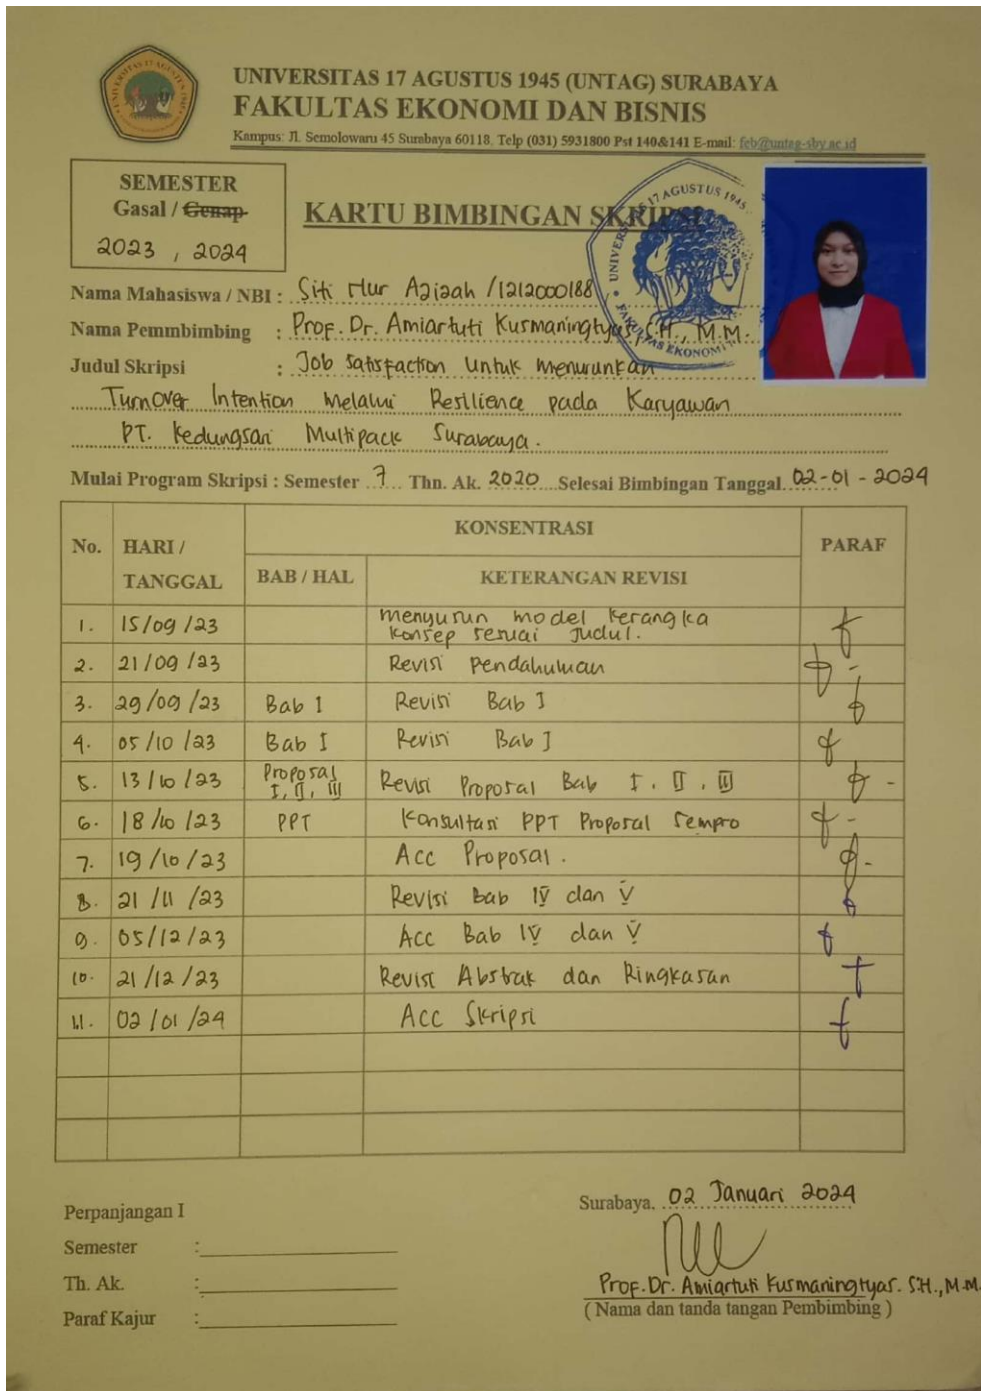 UNIVERSITAS 17 AGUSTUS 1945 (UNTAG) SURABAYA
FAKULTAS EKONOMI DAN BISNIS
Kampus: Jl. Semolowaru 45 Surabaya 60118, Telp (031) 5931800 Pst 140&141 E-mail: feb@untag-sby.ac.id
SEMESTER
Gasal / Genap
2023 , 2024
KARTU BIMBINGAN SKRIPSI
UNIVERSITAS 17 AGUSTUS 1945
FAKULTAS EKONOMI
Nama Mahasiswa / NBI : Siti Nur Azizah / 1212000188
Nama Pemmbimbing : Prof. Dr. Amiartuti Kusmaningtyas, S.H., M.M.
Judul Skripsi : Job Satisfaction Untuk Menurunkan
Turnover Intention Melalui Resilience pada Karyawan
PT. Kedungsari Multipack Surabaya.
Mulai Program Skripsi : Semester 7 Thn. Ak. 2020 Selesai Bimbingan Tanggal. 02-01-2024
No. HARI / TANGGAL KONSENTRASI PARAF
BAB / HAL KETERANGAN REVISI
1. 15/09/23 Menyusun model kerangka
konsep sesuai Judul.
2. 21/09/23 Revisi Pendahuluan
3. 29/09/23 Bab I Revisi Bab I
4. 05/10/23 Bab I Revisi Bab I
5. 13/10/23 Proposal I, II, III Revisi Proposal Bab I, II, III
6. 18/10/23 PPT Konsultasi PPT Proposal Sempro
7. 19/10/23 Acc Proposal.
8. 21/11/23 Revisi Bab IV dan V
9. 05/12/23 Acc Bab IV dan V
10. 21/12/23 Revisi Abstrak dan Ringkasan
11. 02/01/24 Acc Skripsi
Perpanjangan I
Semester :
Th. Ak. :
Paraf Kajur :
Surabaya, 02 Januari 2024
Prof. Dr. Amiartuti Kusmaningtyas. S.H., M.M.
( Nama dan tanda tangan Pembimbing )